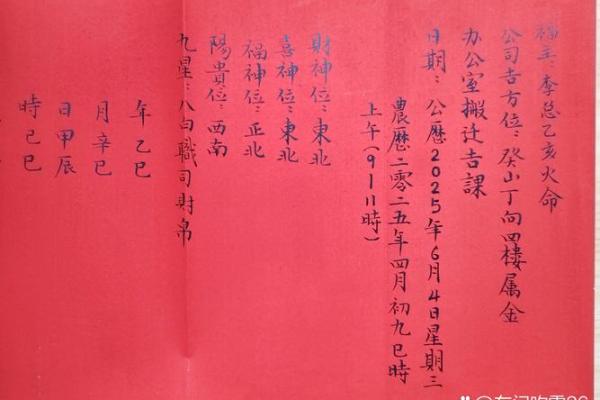 福主：李总乙亥火命
公司吉方位：癸山丁向四楼属金
办公室搬迁吉課
日期：公歷2025年6月4日星期三
農歷二零二五年四月初九巳時
上午（9-11時）
財神位：東北
喜神位：東北
福神位：正北
陽貴位：西南
九星：八白職司財帛
年乙巳
月辛巳
日甲辰
時己巳